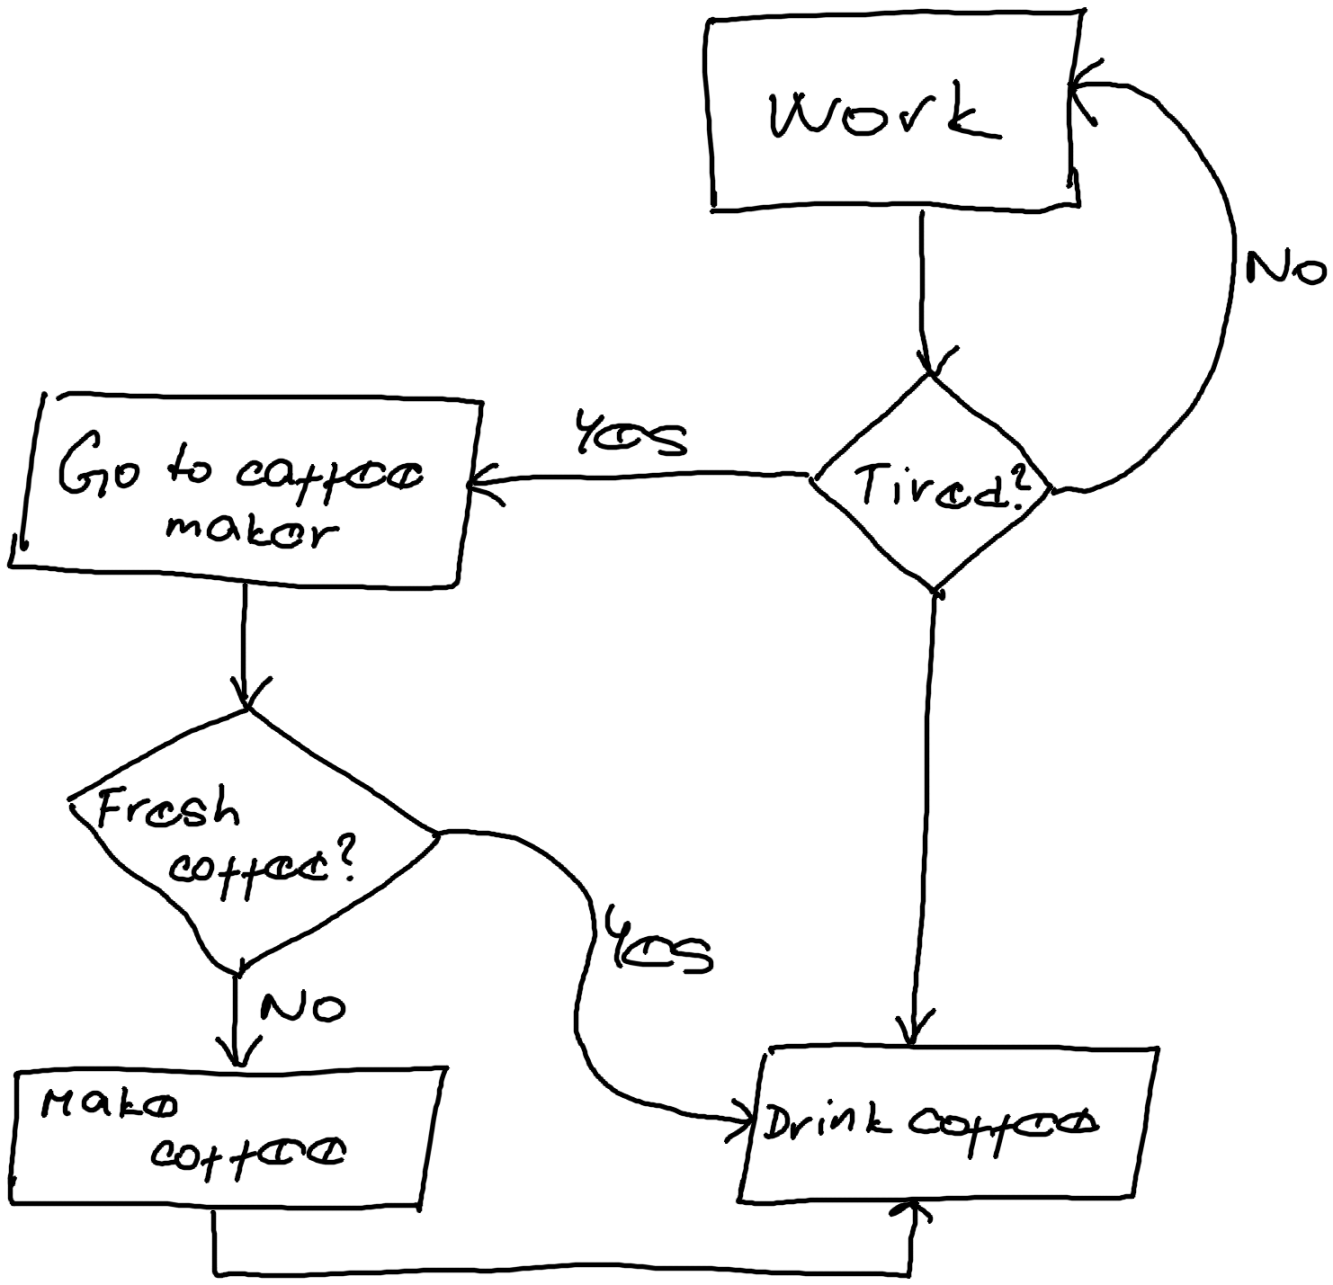 Work
No
Yes
Tired?
Go to coffee
maker
Fresh
coffee?
Yes
No
Make
coffee
Drink Coffee